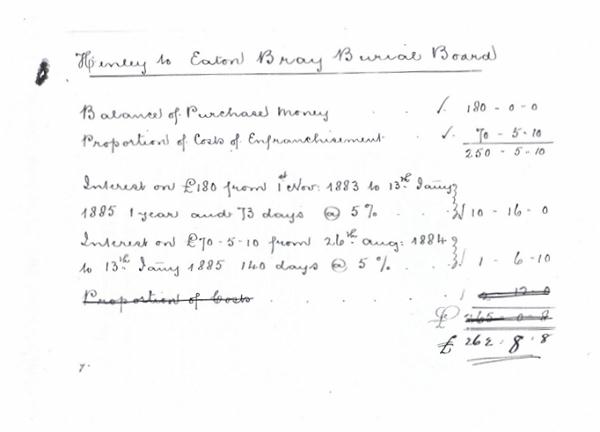 Henley to Eaton Bray Burial Board
Balance of Purchase Money . . √. 180 - 0 - 0
Proportion of Costs of Enfranchisement √. 70 - 5 - 10
250 - 5 - 10
Interest on £180 from 1st Nov: 1883 to 13th Jany
1885 1 year and 73 days @ 5% . . . √ 10 - 16 - 0
Interest on £70-5-10 from 26th Aug: 1884
to 13th Jany 1885 140 days @ 5% . . . √ 1 - 6 - 10
Proportion of Costs . . . . . . 12 - 0
£ 265 - 0 - 8
£ 262 . 8 . 8